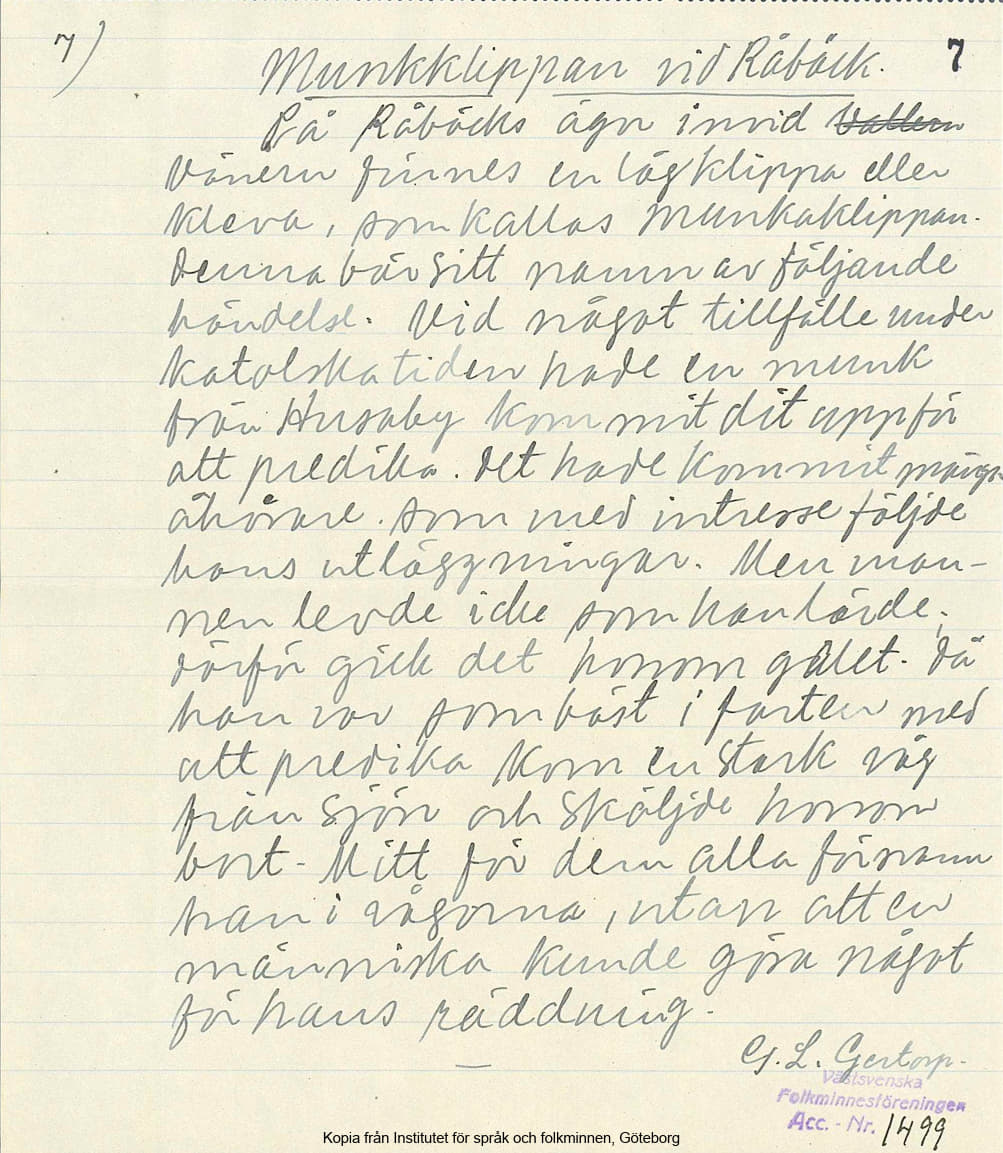 7)
7
Munkklippan vid Råbäck.
På Råbäcks ägor invid Vättern
Vänern finnes en låg klippa eller
kleva, som kallas Munkaklippan.
Denna bär sitt namn av följande
händelse. Vid något tillfälle under
katolska tiden hade en munk
från Husaby kommit dit uppför
att predika. Det hade kommit många
åhörare. som med intresse följde
hans utläggningar. Men man-
nen levde icke som han lärde,
därför gick det honom galet. Då
han var som bäst i farten med
att predika kom en stark våg
från sjön och sköljde honom
bort. Mitt för dem alla försvann
han i vågorna, utan att en
människa kunde göra något
för hans räddning.
G. L. Gertorp.
Västsvenska
Folkminnesföreningen
Acc. - Nr. 1499
Kopia från Institutet för språk och folkminnen, Göteborg